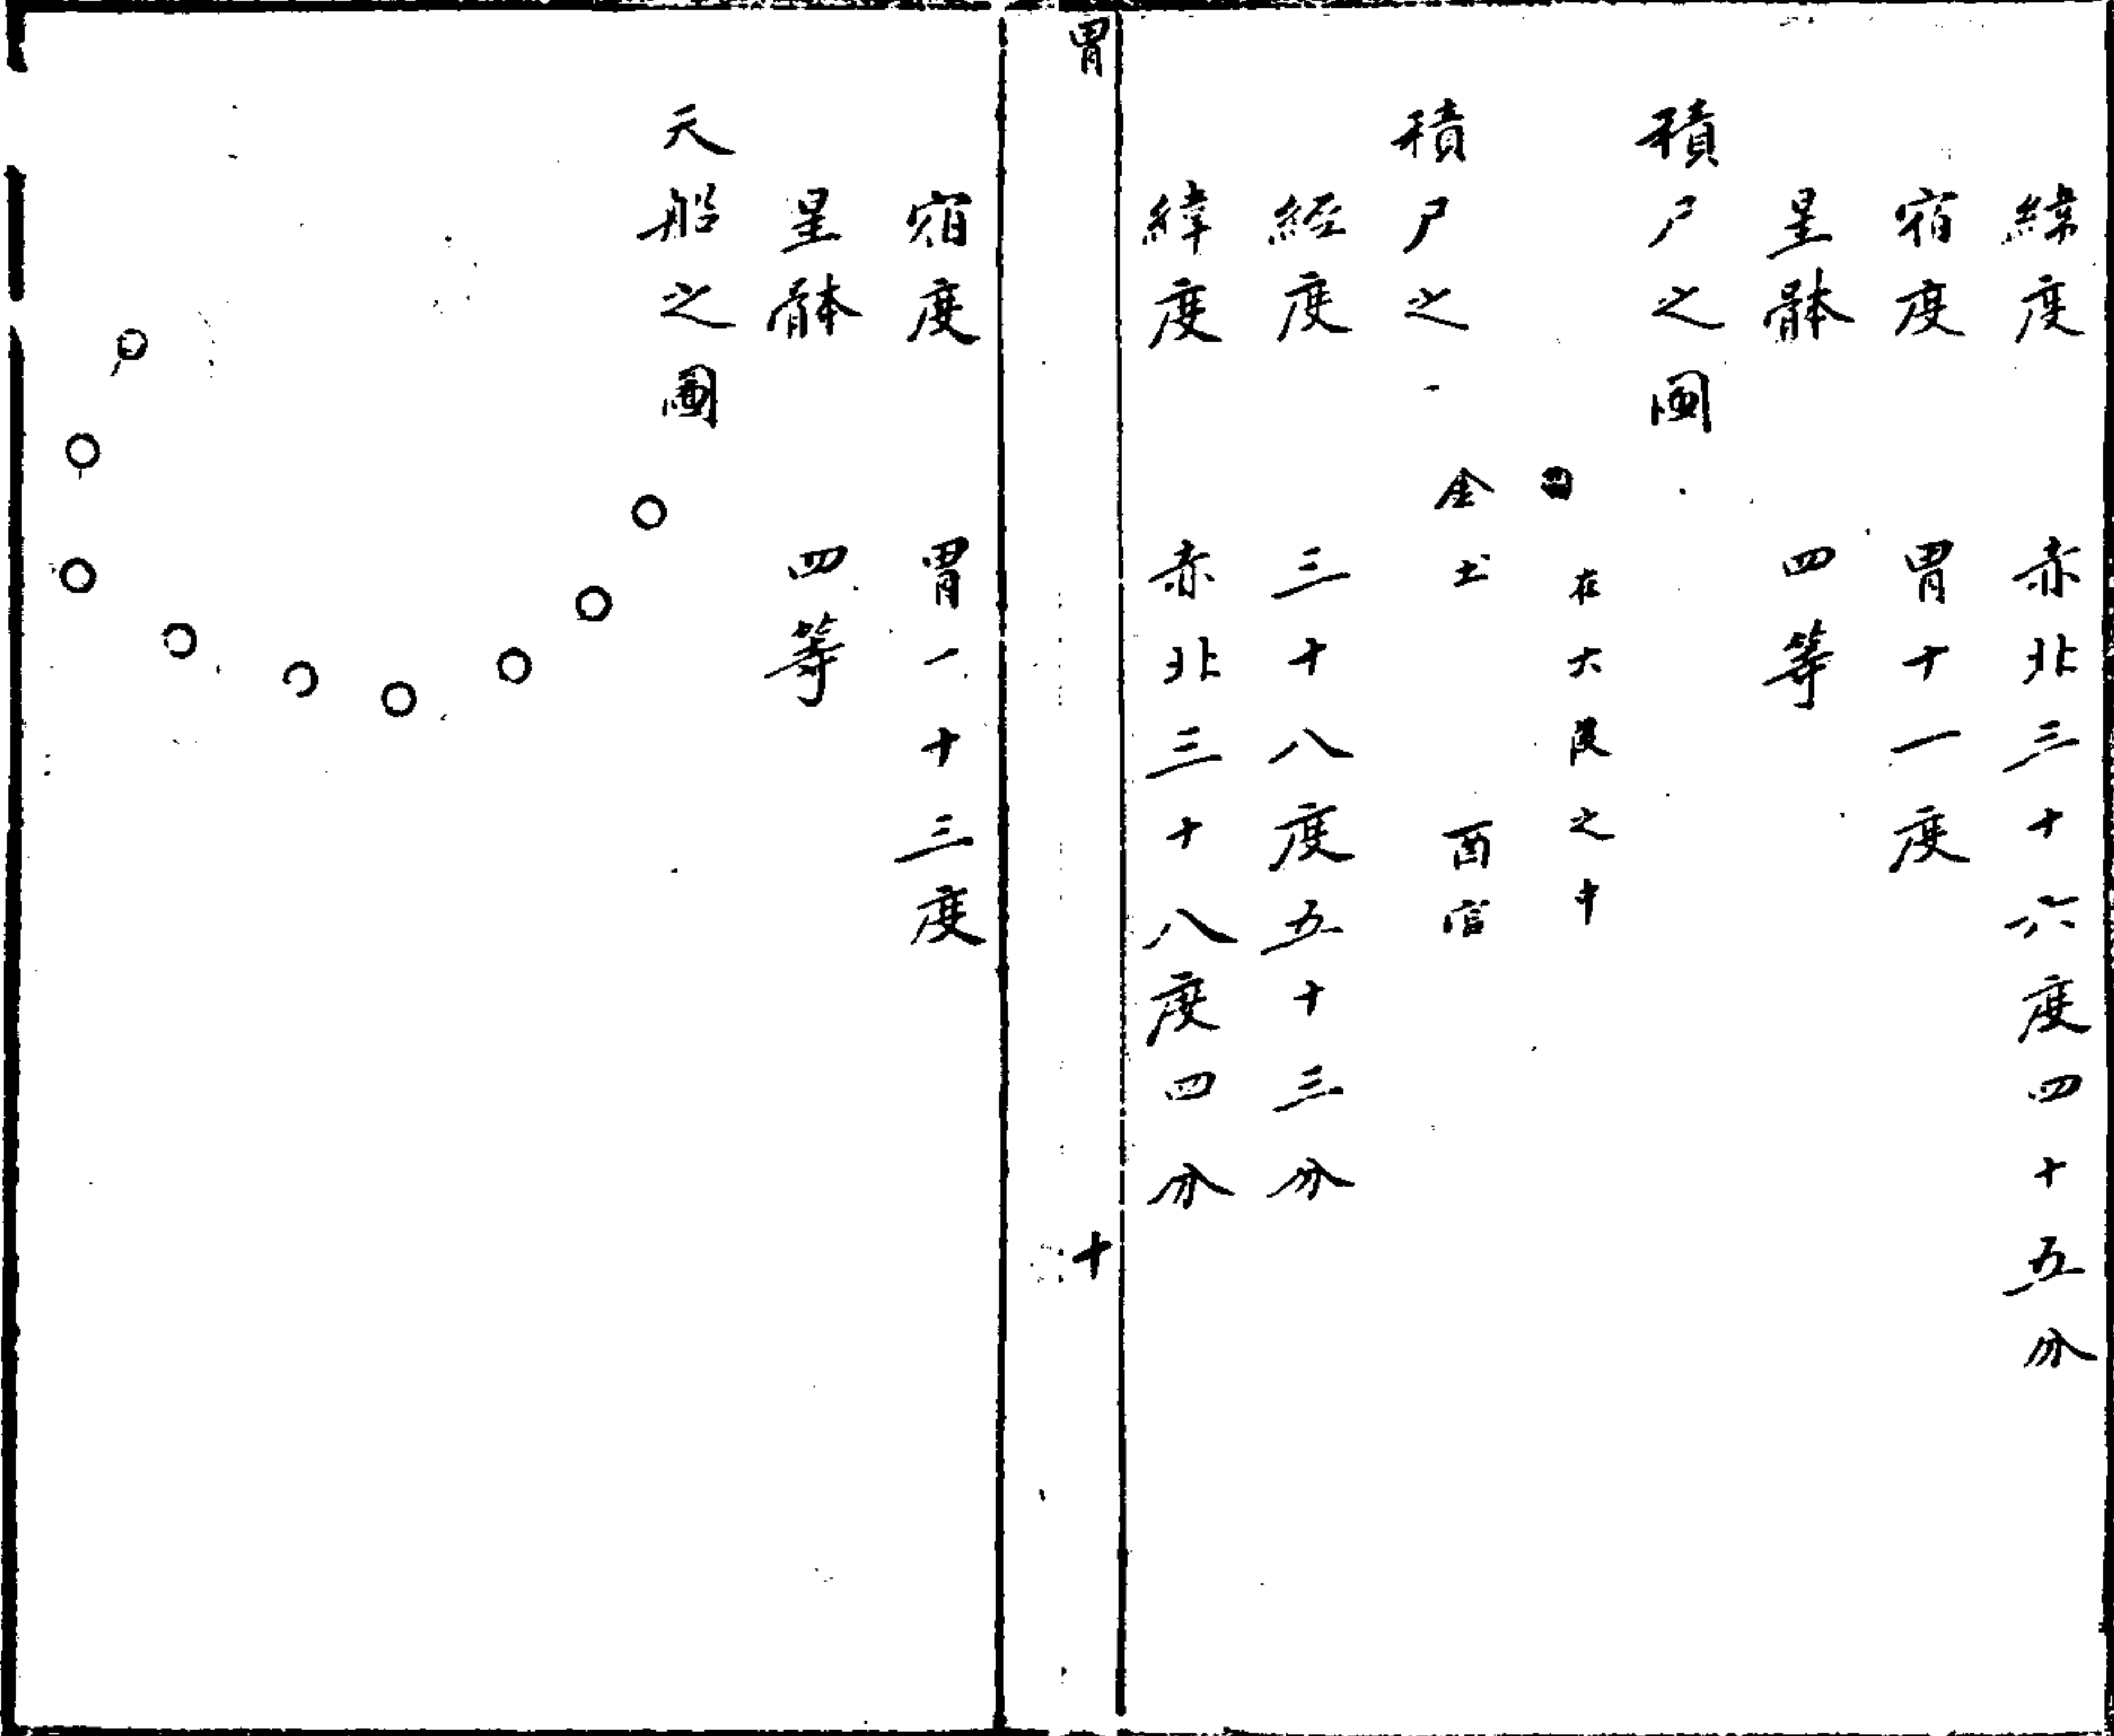 緯度 赤北三十六度四十五分
宿度 胃十一度
星體 四等
積尸之圖
在大陵之中
積尸之一 金土 酉宫
經度 三十八度五十三分
緯度 赤北三十八度四分
胃 十
宿度 胃一十三度
星體 四等
天船之圖